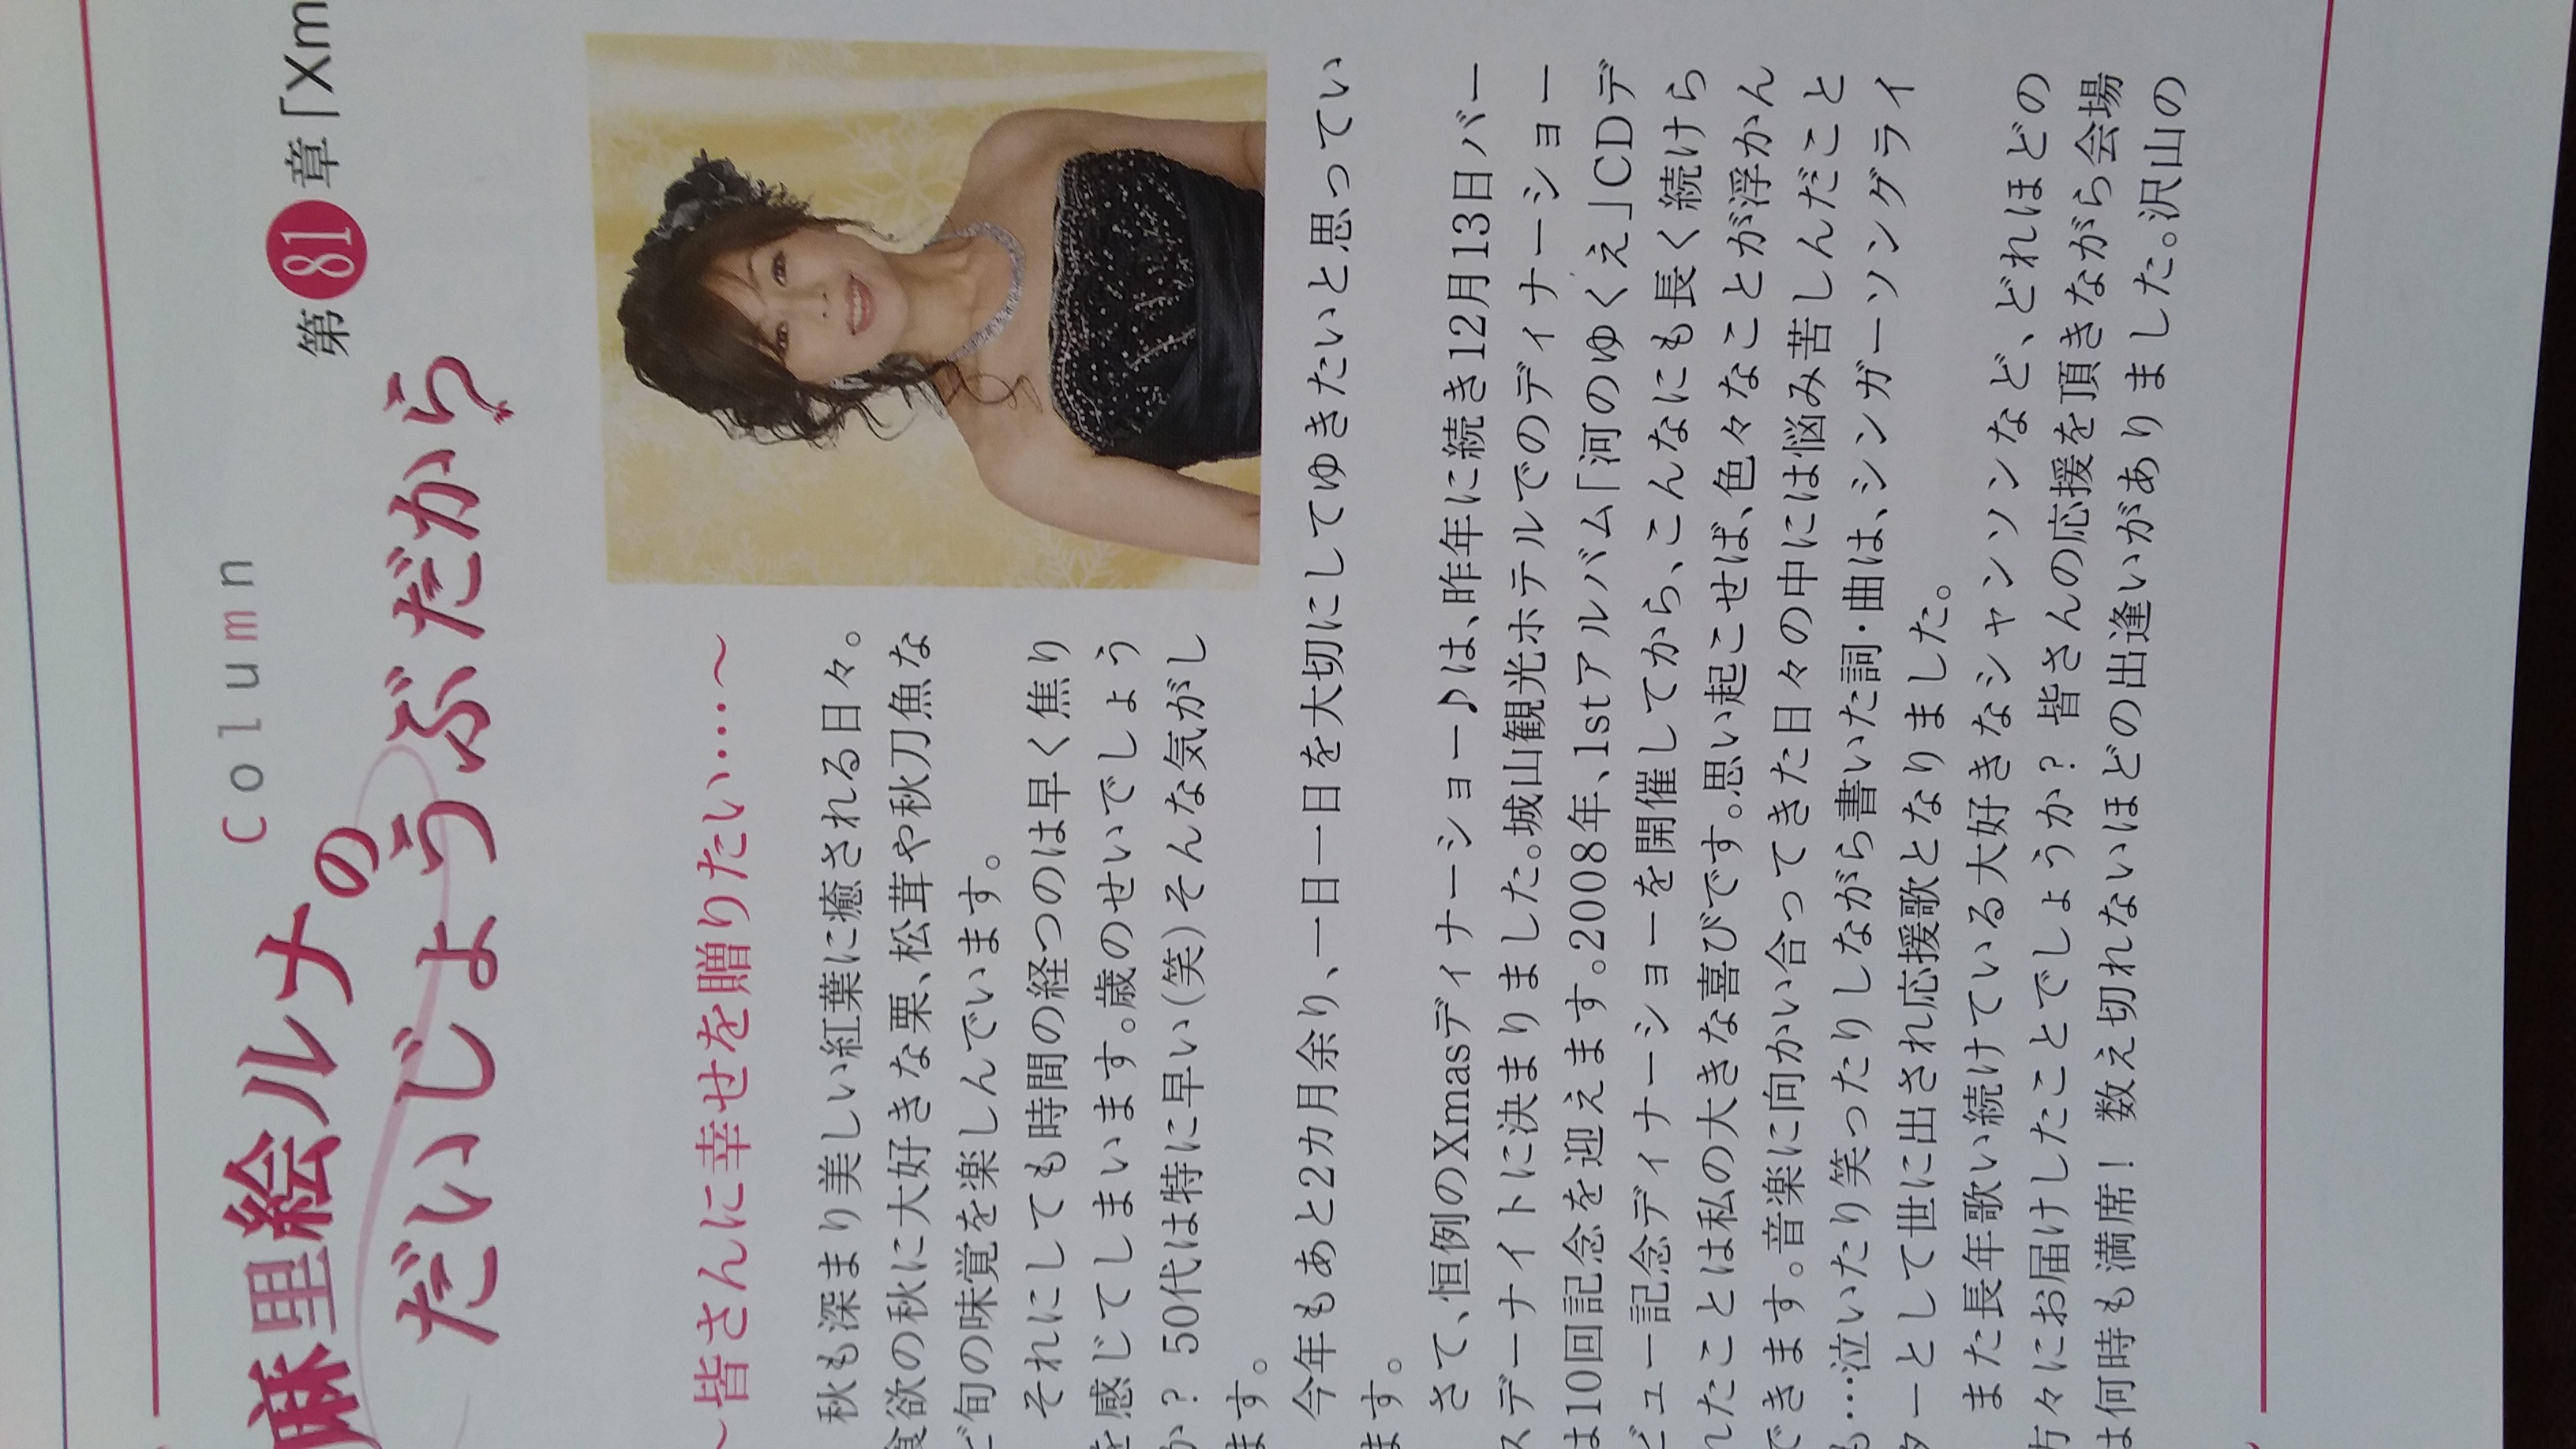 Column
麻里絵ルナの
だいじょうぶだから
第81章「Xm
～皆さんに幸せを贈りたい…～
秋も深まり美しい紅葉に癒される日々。
食欲の秋に大好きな栗、松茸や秋刀魚な
ど旬の味覚を楽しんでいます。
それにしても時間の経つのは早く焦り
を感じてしまいます。歳のせいでしょう
か？ 50代は特に早い（笑）そんな気がし
ます。
今年もあと2カ月余り、一日一日を大切にしてゆきたいと思ってい
ます。
さて、恒例のXmasディナーショー♪は、昨年に続き12月13日バー
スデーナイトに決まりました。城山観光ホテルでのディナーショー
は10回記念を迎えます。2008年、1stアルバム「河のゆくえ」CDデ
ビュー記念ディナーショーを開催してから、こんなにも長く続けら
れたことは私の大きな喜びです。思い起こせば、色々なことが浮かん
できます。音楽に向かい合ってきた日々の中には悩み苦しんだこと
も…泣いたり笑ったりしながら書いた詞・曲は、シンガーソングライ
ターとして世に出され応援歌となりました。
また長年歌い続けている大好きなシャンソンなど、どれほどの
方々にお届けしたことでしょうか？ 皆さんの応援を頂きながら会場
は何時も満席！ 数え切れないほどの出逢いがありました。沢山の